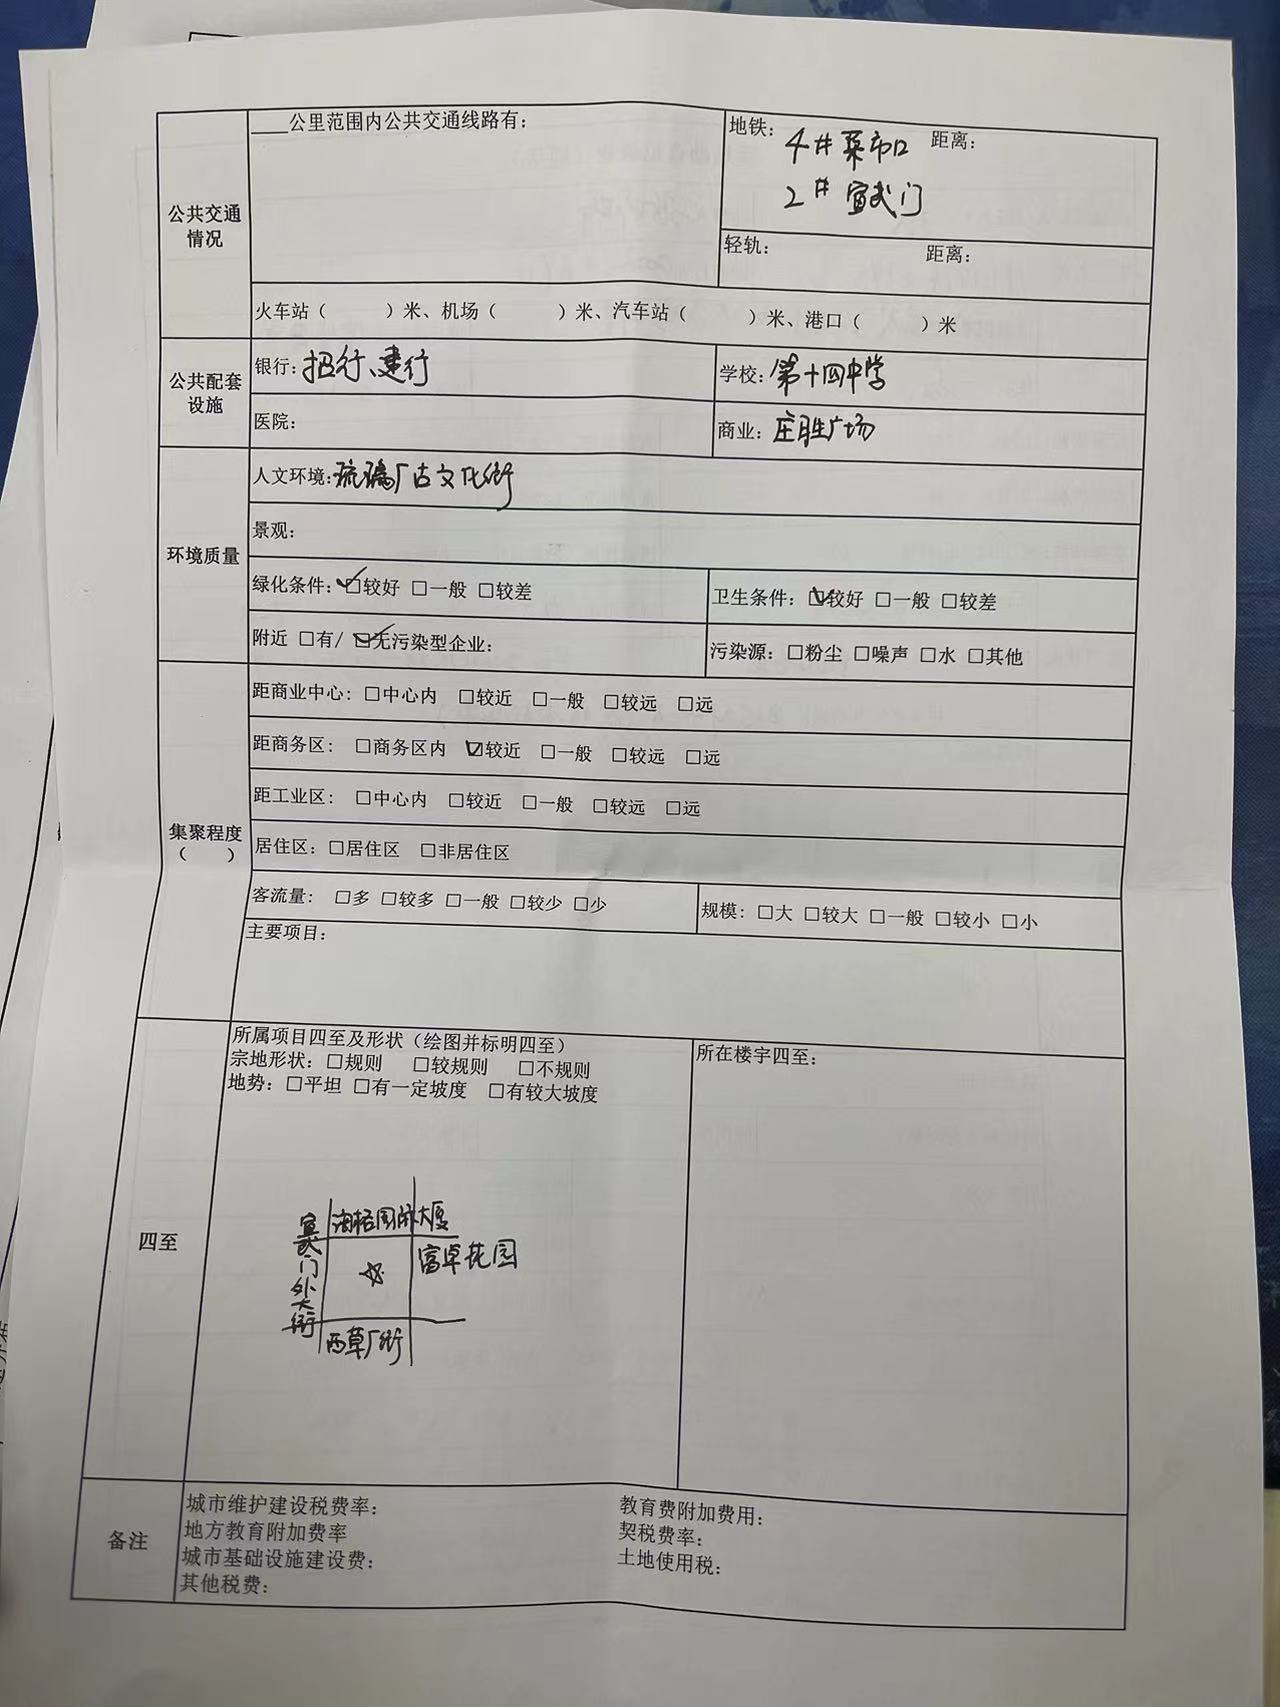 公共交通情况
____公里范围内公共交通线路有：
地铁： 4# 菜市口 距离：
2# 宣武门
轻轨： 距离：
火车站（ ）米、机场（ ）米、汽车站（ ）米、港口（ ）米
公共配套设施
银行：招行、建行
学校：第十四中学
医院：
商业：庄胜广场
环境质量
人文环境：琉璃厂古文化街
景观：
绿化条件：☑较好 □一般 □较差
卫生条件：☑较好 □一般 □较差
附近 □有/☑无污染型企业：
污染源：□粉尘 □噪声 □水 □其他
集聚程度（ ）
距商业中心：□中心内 □较近 □一般 □较远 □远
距商务区：□商务区内 ☑较近 □一般 □较远 □远
距工业区：□中心内 □较近 □一般 □较远 □远
居住区：□居住区 □非居住区
客流量：□多 □较多 □一般 □较少 □少
规模：□大 □较大 □一般 □较小 □小
主要项目：
四至
所属项目四至及形状（绘图并标明四至）
宗地形状：□规则 □较规则 □不规则
地势：□平坦 □有一定坡度 □有较大坡度
所在楼宇四至：
海格国际大厦
宣武门外大街
富卓花园
西草厂街
备注
城市维护建设税费率： 教育费附加费用：
地方教育附加费率 契税费率：
城市基础设施建设费： 土地使用税：
其他税费：